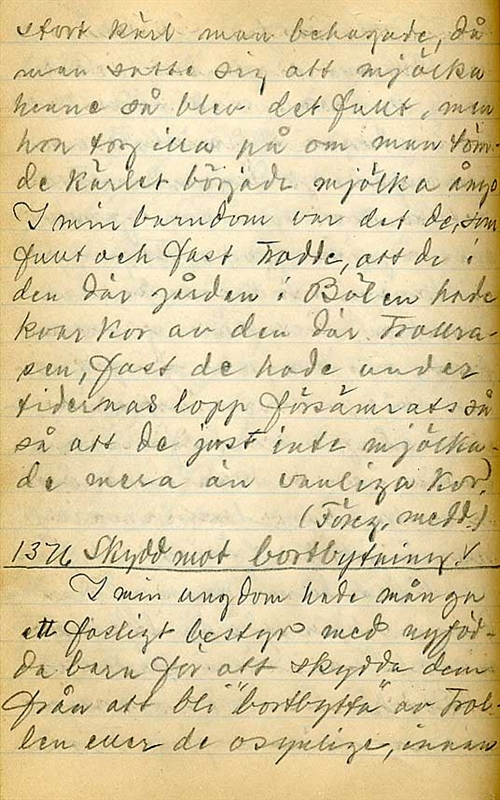 stort kärl man behagade, då
man satte sig att mjölka
henne så blev det fullt, men
hon tog illa på om man töm-
de kärlet började mjölka ånyo
I min barndom var det de, som
fullt och fast trodde, att de i
den där gården i Bölen hade
kvar kor av den där trollra-
sen, fast de hade under
tidernas lopp försämrats så
så att de just inte mjölka-
de mera än vanliga kor.
(Föreg. medd.)
1376 Skydd mot bortbytning. V
I min ungdom hade många
ett fasligt bestyr med nyföd-
da barn för att skydda dem
från att bli "bortbytta" av trol-
len eller de osynlige, innan